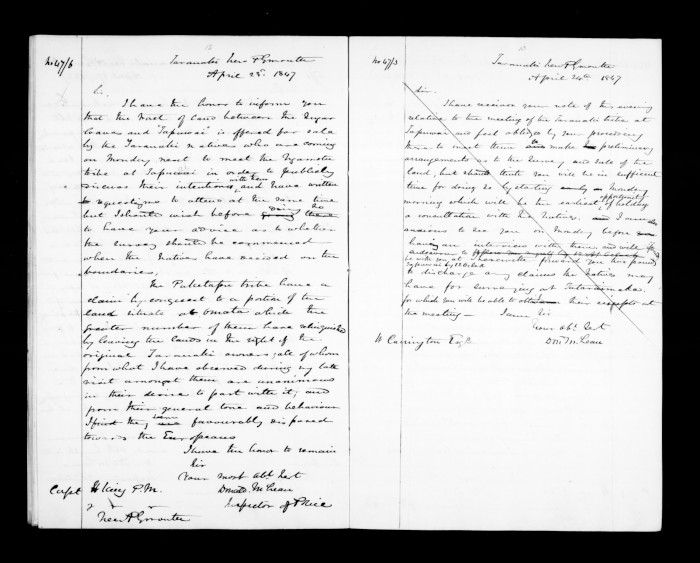 No 47/6
Taranaki New Plymouth
April 23d 1847
Sir,
I have the honor to inform you
that the Tract of land between the Sugar
loaves and Tapuwai is offered for sale
by the Taranaki natives who are coming
on Monday next to meet the Ngamotu
tribe at Tapuwai in order to publicly
discuss their intentions with them and have written
requesting me to attend at the same time
but I should wish before doing so
to have your advice as to whether
the survey should be commenced
when the Natives have decided on the
boundaries,
The Puketapu tribe have a
claim by conquest to a portion of the
land situate at Omata which the
greater number of them have relinquished
by leaving the lands in the right of the
original Taranaki owners, all of whom
from what I have observed during my late
visit amongst them are unanimous
in their desire to part with it, and
from their general tone and behaviour
I find they seem favourably disposed
towards the Europeans
I have the honor to remain
Sir
Your most obt Sert
Donald McLean
Inspector of Police
Capt H King P.M.
New Plymouth
No 47/3
Taranaki New Plymouth
April 24th 1847
Sir
I have received your note of this evening
relative to the meeting of the Taranaki tribe at
Tapuwai and feel obliged by your proceeding
there to meet them to make preliminary
arrangements as to the survey and sale of the
land, but think you will be in sufficient
time for doing so by starting on Monday
morning which will be the earliest opportunity of holding
a consultation with the Natives. I am
anxious to see you on Monday before
having an interview with them and will
endeavour to
be with you at Tapuwai by 12 O'clock
herewith forward you ten pounds
to discharge any claims the Natives may
have for surveying at Tataraimaka,
for which you will be able to obtain their receipts at
the meeting —
I am Sir
Your obt Sert
Don McLean
W Carrington Esqr